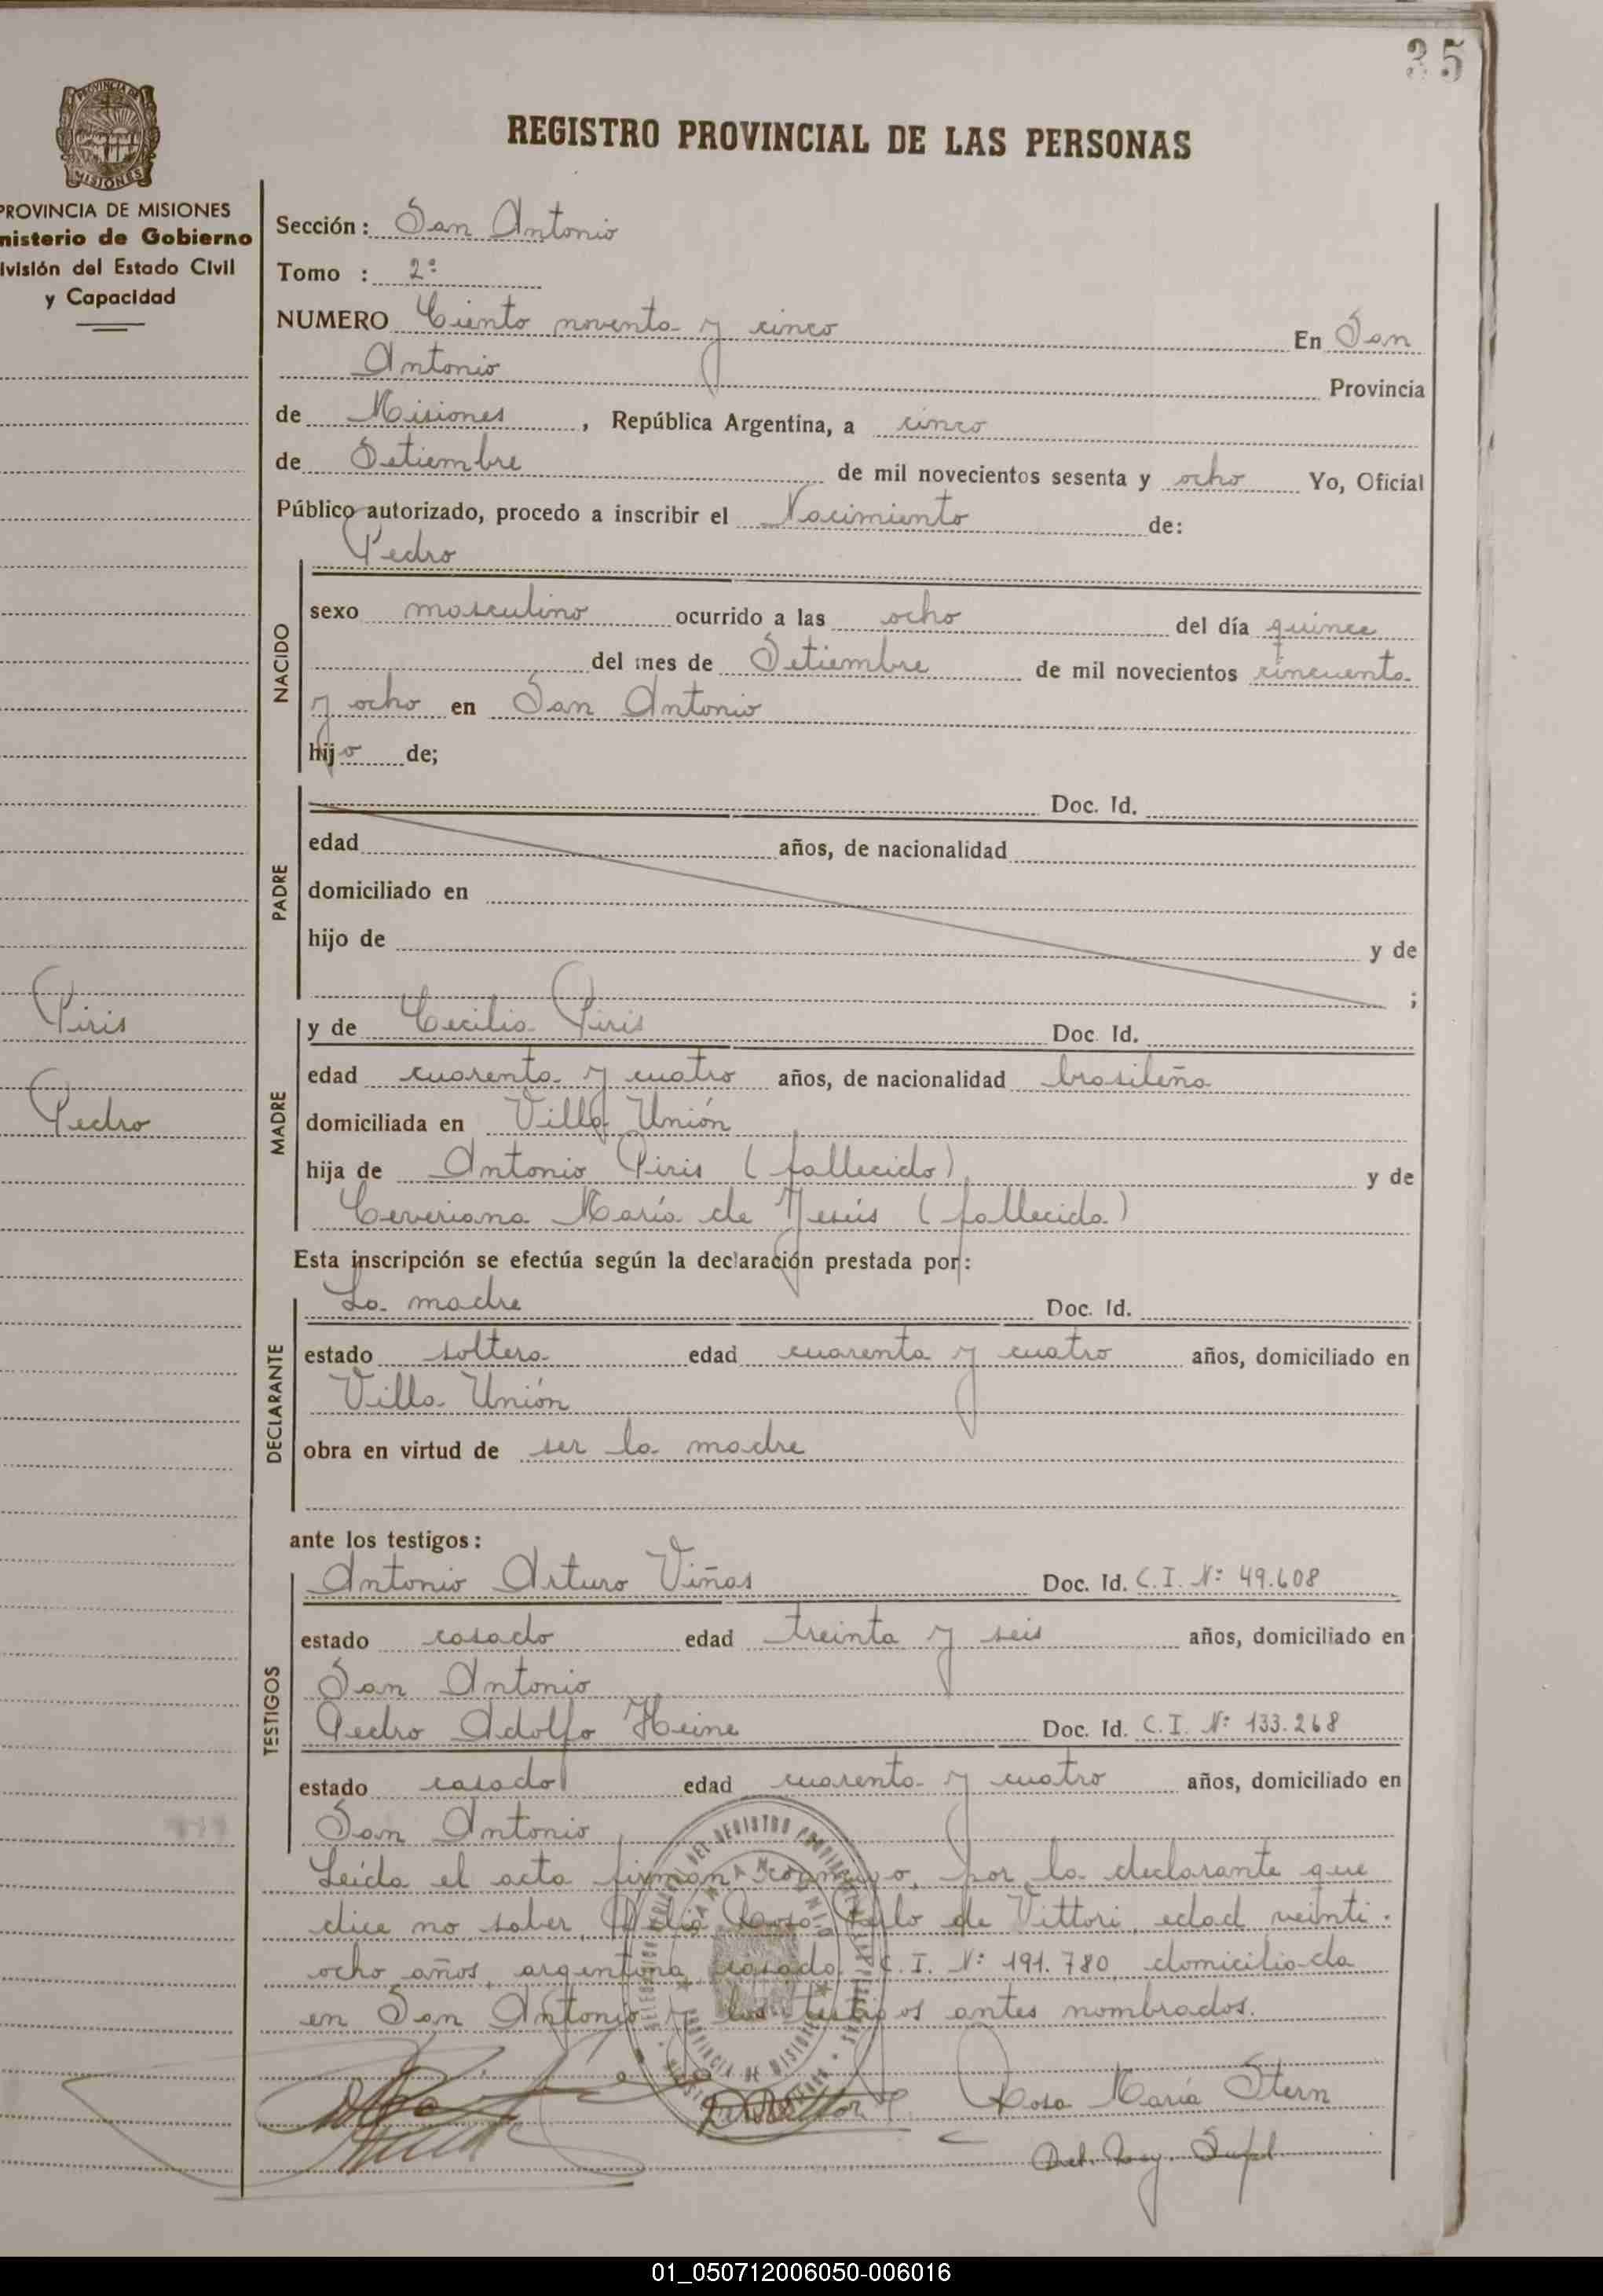 35
REGISTRO PROVINCIAL DE LAS PERSONAS
PROVINCIA DE MISIONES
nisterio de Gobierno
ivisión del Estado Civil
y Capacidad
Sección: San Antonio
Tomo : 2º
NUMERO Ciento noventa y cinco En San
Antonio Provincia
de Misiones, República Argentina, a cinco
de Setiembre de mil novecientos sesenta y ocho Yo, Oficial
Público autorizado, procedo a inscribir el Nacimiento de:
Pedro
NACIDO
sexo masculino ocurrido a las ocho del día quince
del mes de Setiembre de mil novecientos cincuenta
y ocho en San Antonio
hijo de;
PADRE
Doc. Id.
edad años, de nacionalidad
domiciliado en
hijo de y de
;
Piris
Pedro
MADRE
y de Cecilia Piris Doc. Id.
edad cuarenta y cuatro años, de nacionalidad brasileña
domiciliada en Villa Unión
hija de Antonio Piris (fallecido) y de
Ceveriana María de Jesús (fallecida)
Esta inscripción se efectúa según la declaración prestada por:
DECLARANTE
La madre Doc. Id.
estado soltera edad cuarenta y cuatro años, domiciliado en
Villa Unión
obra en virtud de ser la madre
ante los testigos:
TESTIGOS
Antonio Arturo Viñas Doc. Id. C.I. Nº 49.608
estado casado edad treinta y seis años, domiciliado en
San Antonio
Pedro Adolfo Heine Doc. Id. C.I. Nº 133.268
estado casado edad cuarenta y cuatro años, domiciliado en
San Antonio
Leída el acta firman conmigo, por la declarante que
dice no saber, Rosa de Vittori, edad veinti-
ocho años, argentina, casada, C.I. Nº 191.780, domiciliada
en San Antonio y los testigos antes nombrados.
Rosa María Stern
01_050712006050-006016